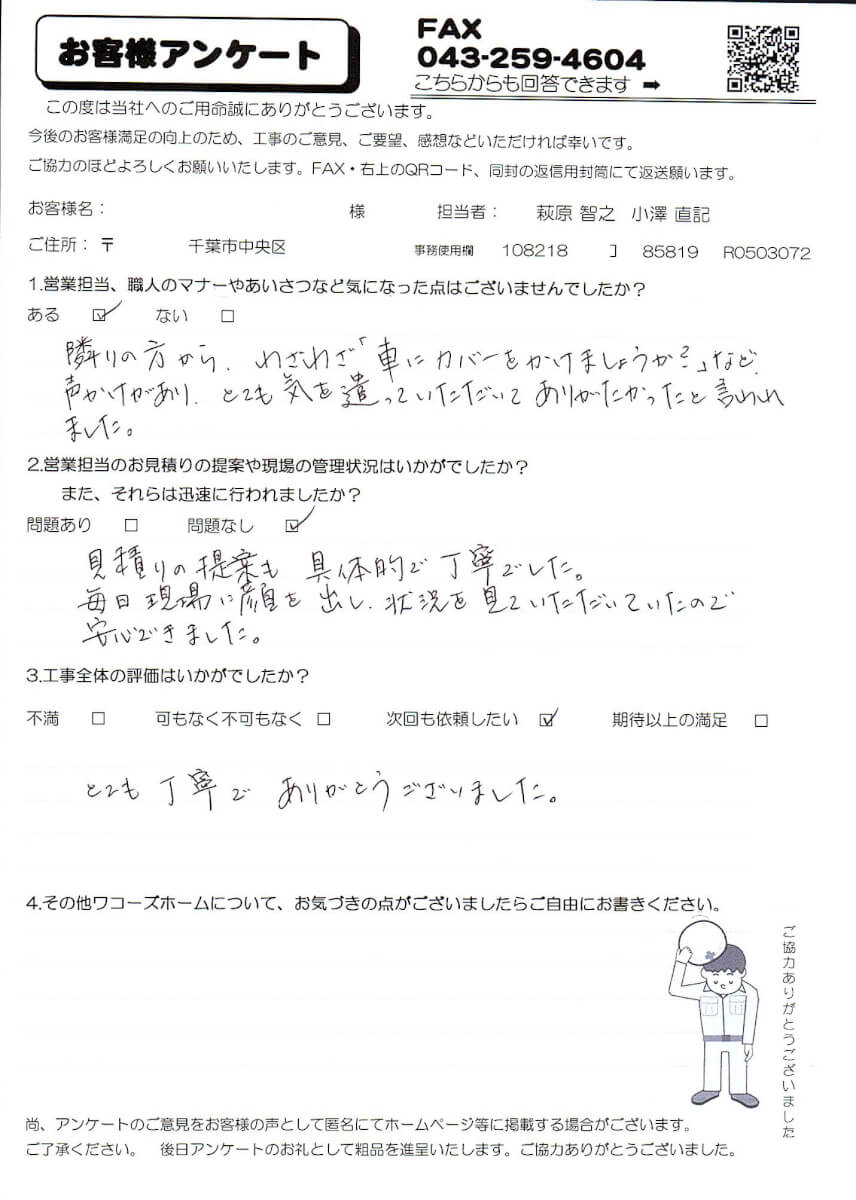 お客様アンケート
FAX
043-259-4604
こちらからも回答できます ➡
この度は当社へのご用命誠にありがとうございます。
今後のお客様満足の向上のため、工事のご意見、ご要望、感想などいただければ幸いです。
ご協力のほどよろしくお願いいたします。FAX・右上のQRコード、同封の返信用封筒にて返送願います。
お客様名： 様 担当者： 萩原 智之 小澤 直記
ご住所：〒 千葉市中央区 事務使用欄 108218 ] 85819 R0503072
1.営業担当、職人のマナーやあいさつなど気になった点はございませんでしたか？
ある ☑ ない □
隣りの方から、わざわざ「車にカバーをかけましょうか?」など、
声かけがあり、とても気を遣っていただいてありがたかったと言われ
ました。
2.営業担当のお見積りの提案や現場の管理状況はいかがでしたか？
また、それらは迅速に行われましたか？
問題あり □ 問題なし ☑
見積りの提案も 具体的で丁寧でした。
毎日現場に顔を出し、状況を見ていただいていたので
安心できました。
3.工事全体の評価はいかがでしたか？
不満 □ 可もなく不可もなく □ 次回も依頼したい ☑ 期待以上の満足 □
とても丁寧で ありがとうございました。
4.その他ワコーズホームについて、お気づきの点がございましたらご自由にお書きください。
ご協力ありがとうございました
尚、アンケートのご意見をお客様の声として匿名にてホームページ等に掲載する場合がございます。
ご了承ください。 後日アンケートのお礼として粗品を進呈いたします。ご協力ありがとうございました。